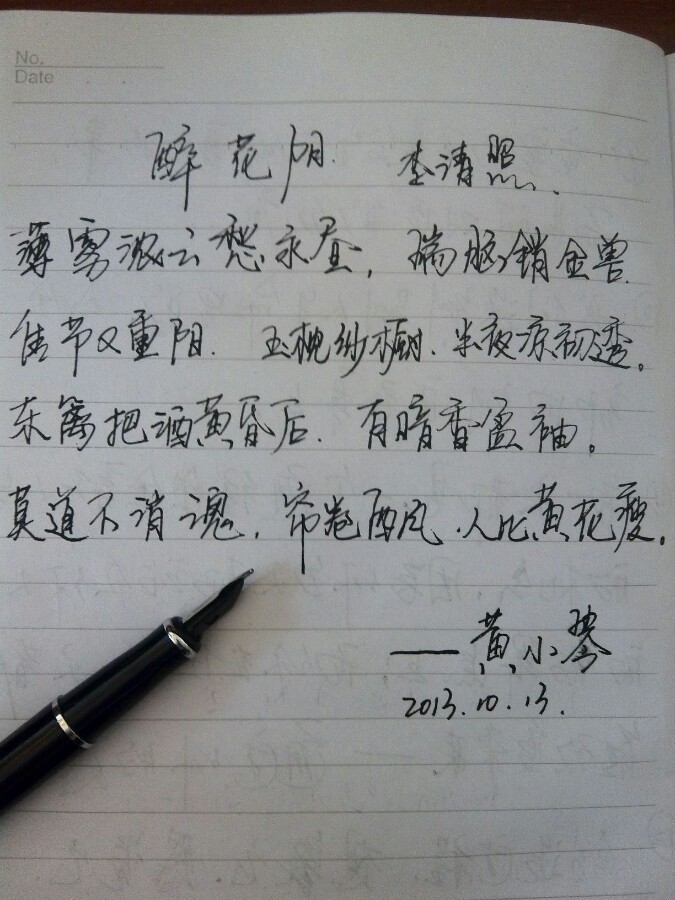 No.
Date
醉花阴 李清照
薄雾浓云愁永昼，瑞脑销金兽.
佳节又重阳. 玉枕纱橱. 半夜凉初透。
东篱把酒黄昏后. 有暗香盈袖。
莫道不消魂，帘卷西风.人比黄花瘦。
——黄小琴
2013.10.13.